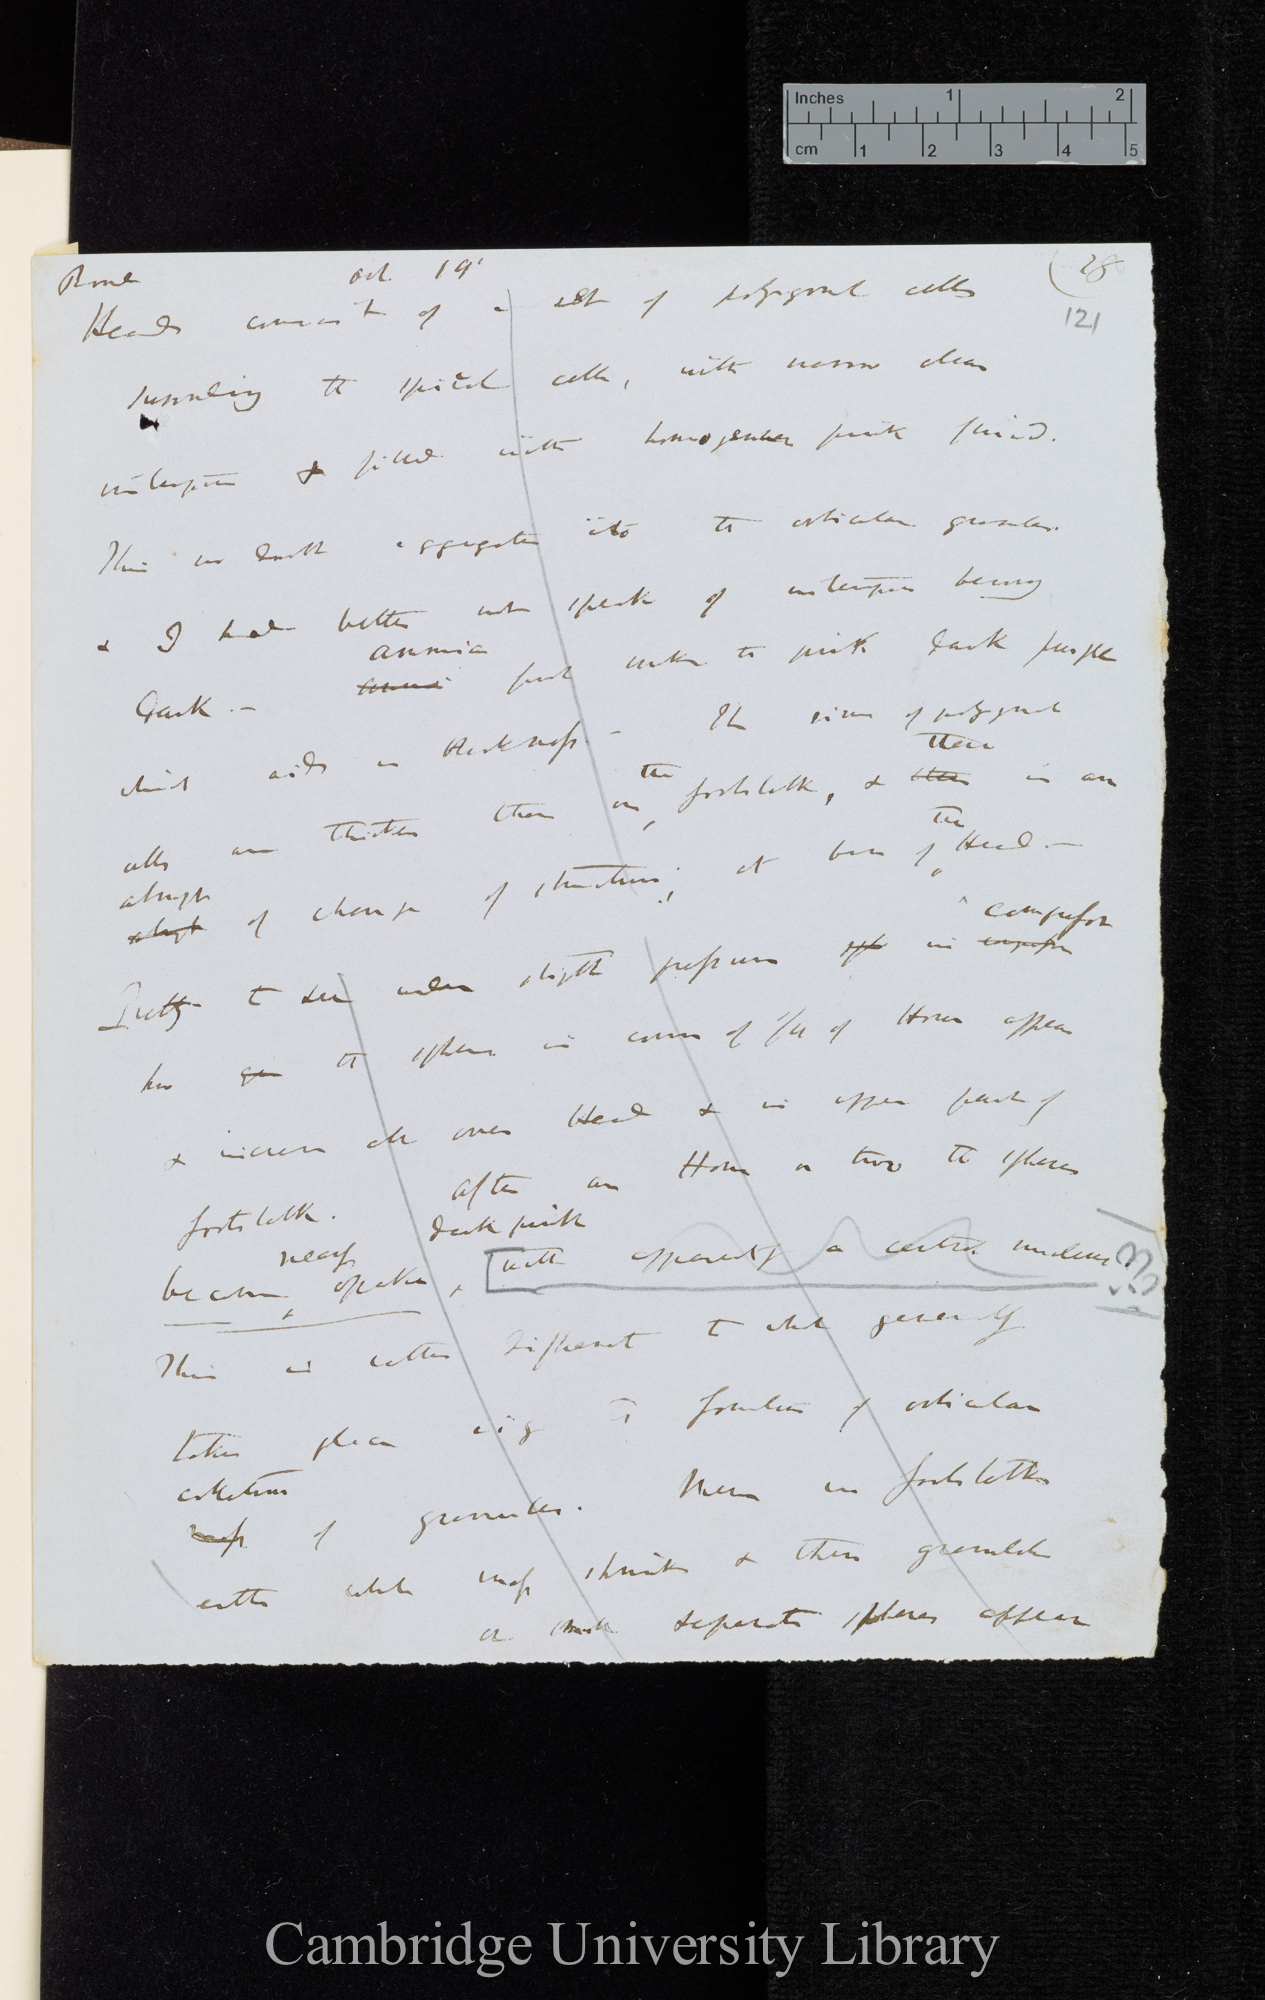 Inches 1 2
cm 1 2 3 4 5
Oct. 19' (28
121
Heads consist of a set of polygonal cells
resembling the spiral cells, with narrow clear
interspaces & filled with homogeneous pink fluid.
This no doubt aggregates into the orticular granules.
& I had better not speak of interspaces being
dark.— ammonia
fluid makes the pink dark purple
which adds in thickness.— The rims of polygonal
cells are thicker than in the footstalk, & there is an
abrupt
abrupt of change of structure; at base of the Head —
Pretty to see under slight pressure in compressor
how the sphere in course of 1/4 of Hour appear
& increase all over Head & in upper part of
footstalk. After an Hour or two the spheres
became nearly opake, dark pink
with apparently a central nucleus.
This is rather different to what generally
takes place viz the formation of orticular
collection
mass of granules. Mem in footstalks
either whole mass shrinks & then granulate
or small separate spheres appear
Cambridge University Library